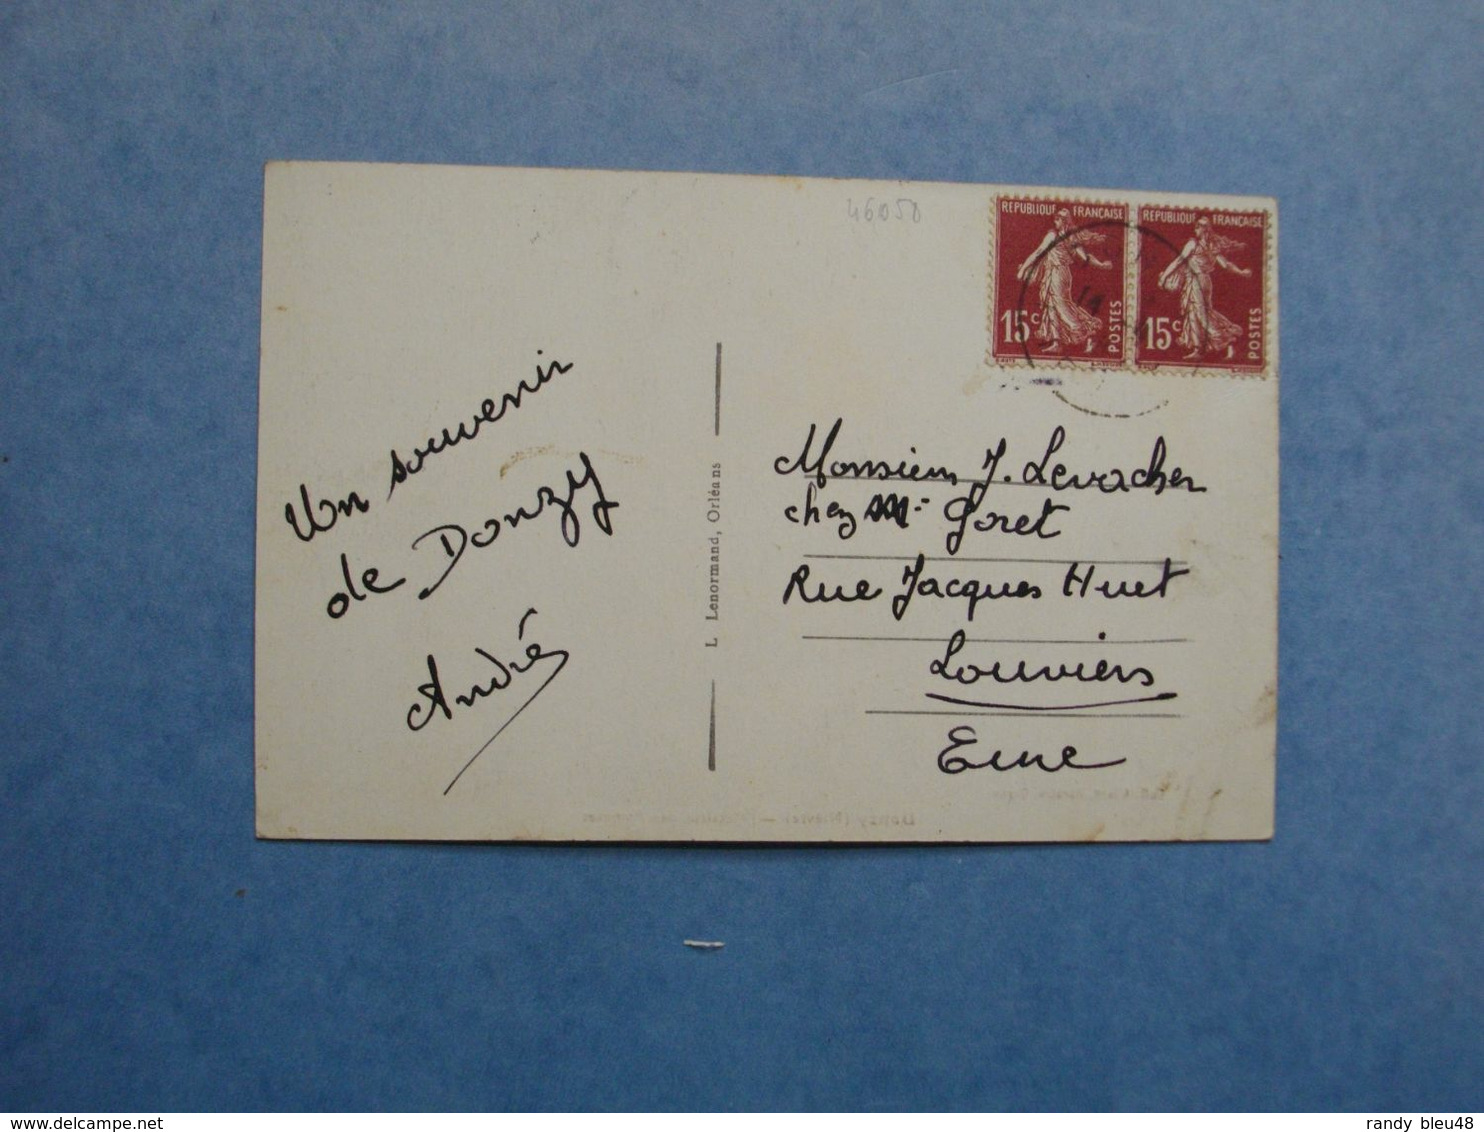 46050
REPUBLIQUE FRANÇAISE
15c
POSTES
REPUBLIQUE FRANÇAISE
15c
POSTES
Un souvenir
de Donzy
André
L. Lenormand, Orléans
Monsieur J. Levacher
chez Goret
Rue Jacques Huet
Louviers
Eure
delcampe.net
randy_bleu48